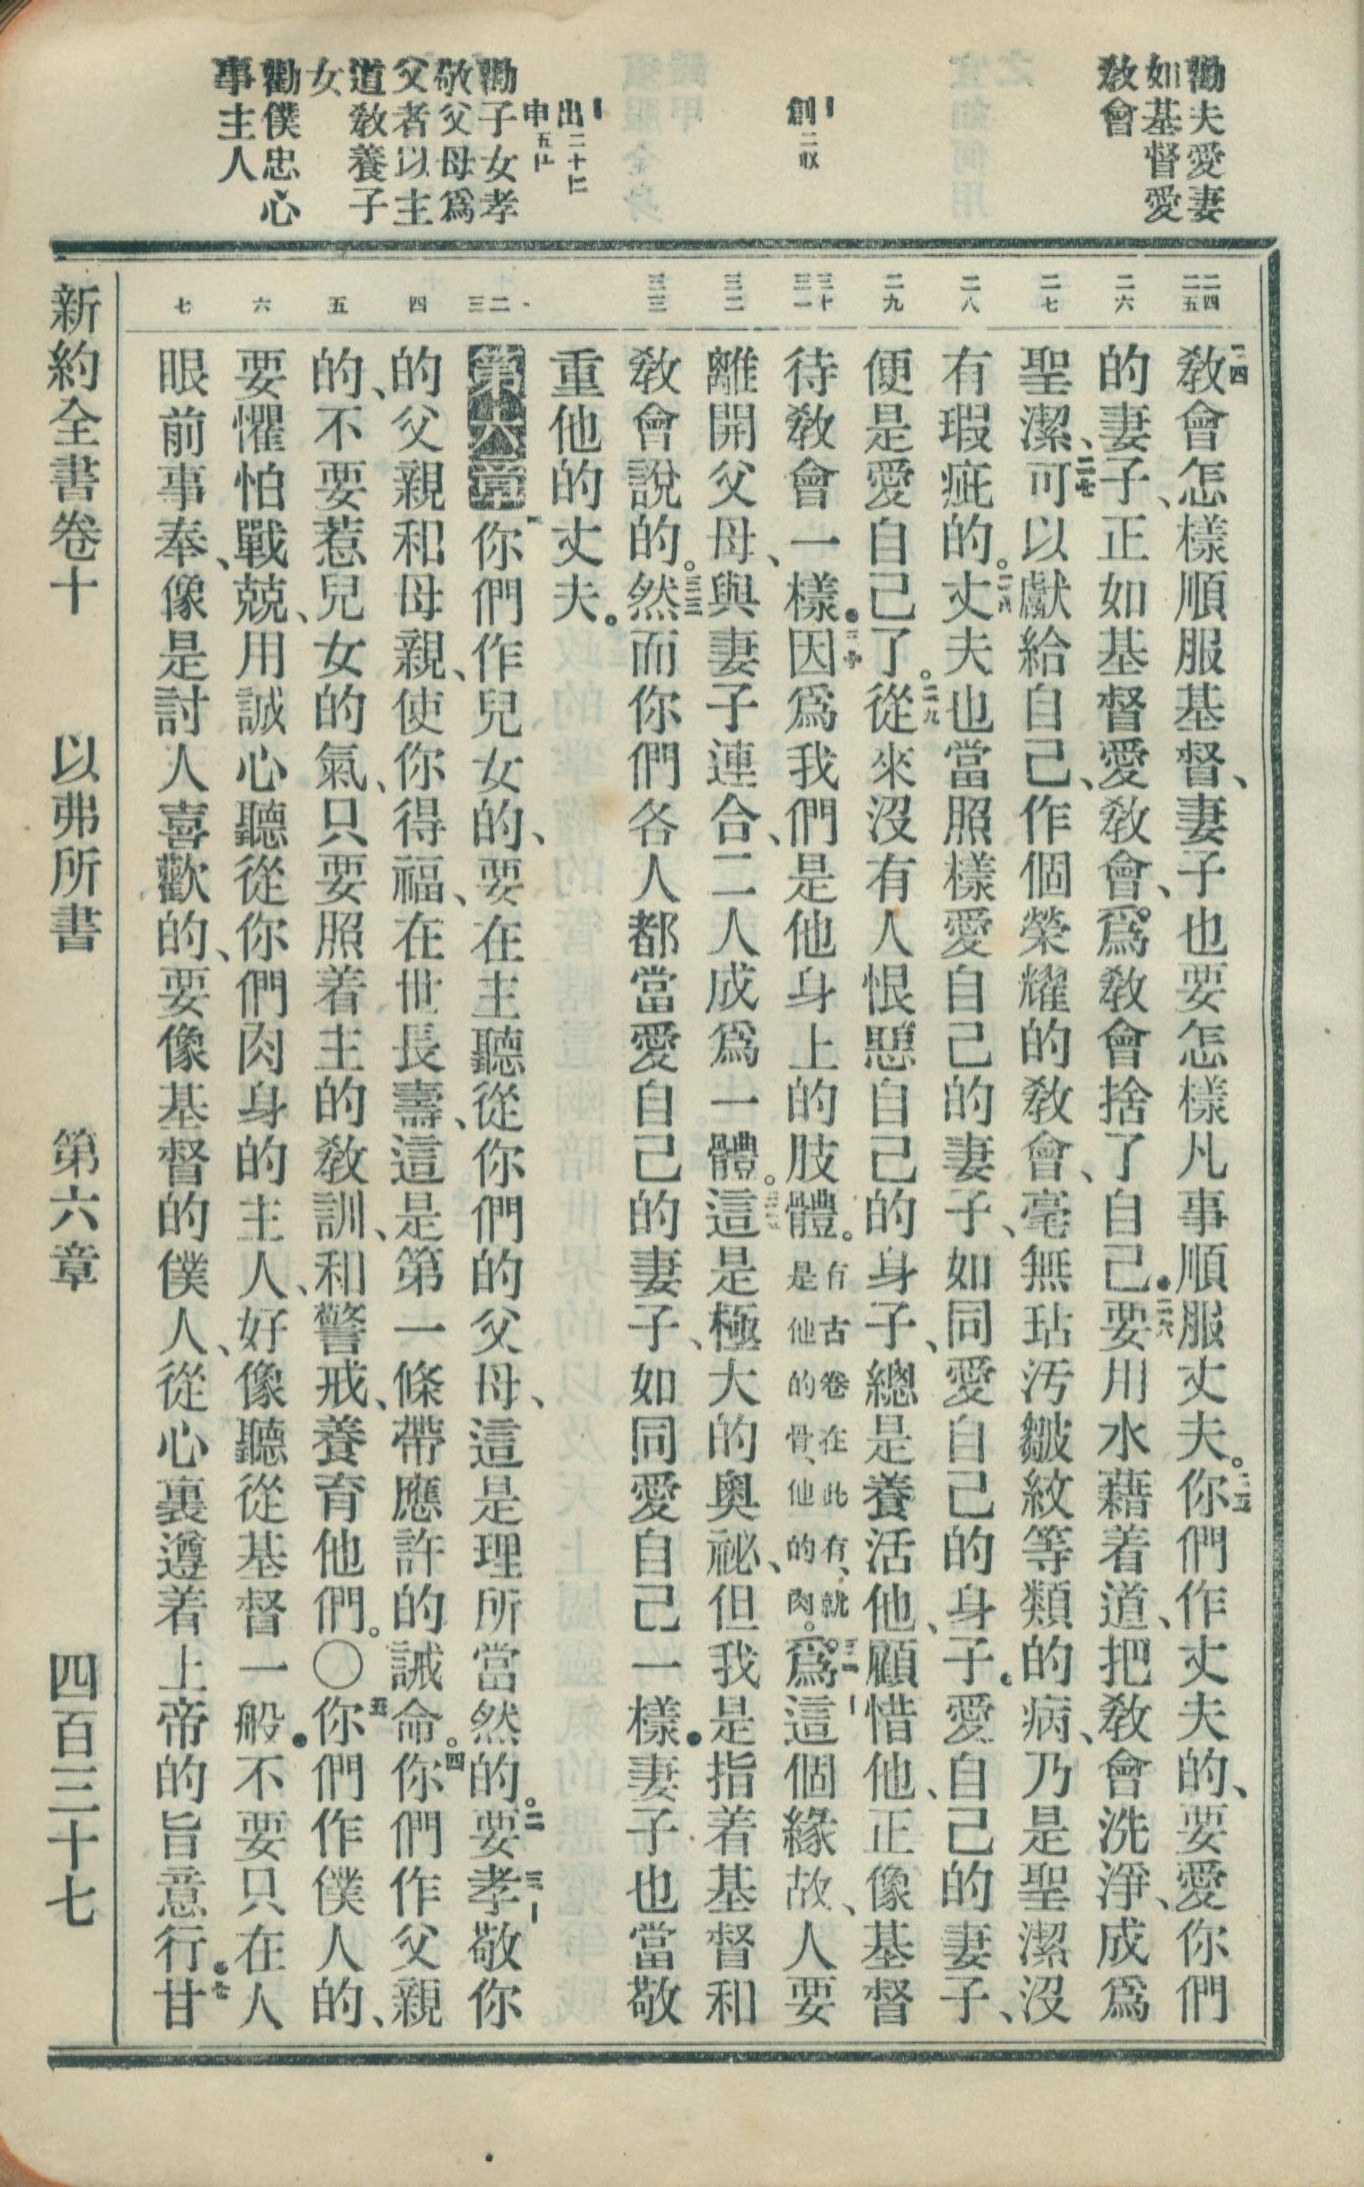 勸夫愛妻
如基督愛
敎會
創二
出二十
申五
勸子女孝
敬父母爲
父者以主
道敎養子
女
勸僕忠心
事主人
二四
二五
二六
二七
二八
二九
三十
三一
三二
三三
一
二
三
四
五
六
七
二四敎會怎樣順服基督、妻子也要怎樣凡事順服丈夫。二五你們作丈夫的、要愛你們
的妻子、正如基督愛敎會、爲敎會捨了自己．二六要用水藉着道、把敎會洗淨、成爲
聖潔、二七可以獻給自己、作個榮耀的敎會、毫無玷汚皺紋等類的病、乃是聖潔沒
有瑕疵的。二八丈夫也當照樣愛自己的妻子、如同愛自己的身子．愛自己的妻子、
便是愛自己了。二九從來沒有人恨惡自己的身子、總是養活他、顧惜他、正像基督
待敎會一樣．三十因爲我們是他身上的肢體。有古卷在此有、就是他的骨、他的肉。三一爲這個緣故、人要
離開父母、與妻子連合、二人成爲一體。三二這是極大的奧祕、但我是指着基督和
敎會說的。三三然而你們各人都當愛自己的妻子、如同愛自己一樣．妻子也當敬
重他的丈夫。
第六章一你們作兒女的、要在主聽從你們的父母、這是理所當然的。二三要孝敬你
的父親和母親、使你得福、在世長壽、這是第一條帶應許的誡命。四你們作父親
的、不要惹兒女的氣、只要照着主的敎訓、和警戒、養育他們。〇五你們作僕人的、
要懼怕戰兢、用誠心聽從你們肉身的主人、好像聽從基督一般．六不要只在人
眼前事奉、像是討人喜歡的、要像基督的僕人、從心裏遵着上帝的旨意行．七甘
新約全書卷十　以弗所書　第六章　四百三十七